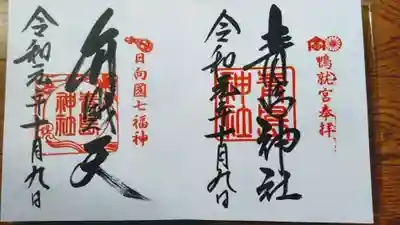 鴨就宮奉拝
青島神社
青島神社
令和元年十月九日
日向國七福神
弁財天
青島神社
令和元年十月九日